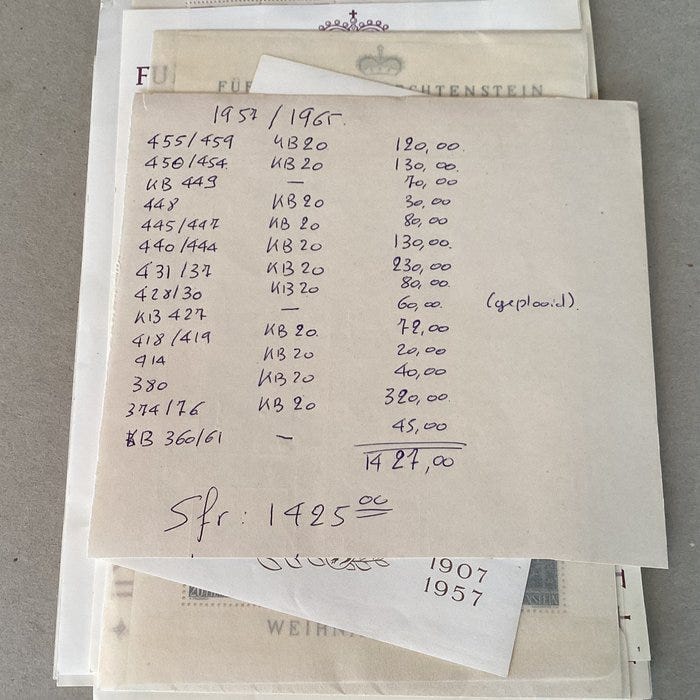 FU
FÜR CHTENSTEIN
1957/1965.
455/459 KB 20 120,00.
450/454. KB 20 130,00.
KB 449 — 70,00
448 KB 20 30,00
445/447 KB 20 80,00
440/444 KB 20 130,00.
431/37 KB 20 230,00
428/30 KB 20 80,00.
KB 427 — 60,00. (geplooid).
418/419 KB 20. 72,00
414 KB 20 20,00
380 KB 20 40,00
374/76 KB 20 320,00.
KB 360/61 — 45,00
1427,00
Sfr: 1425 00
1907
1957
WEIHN